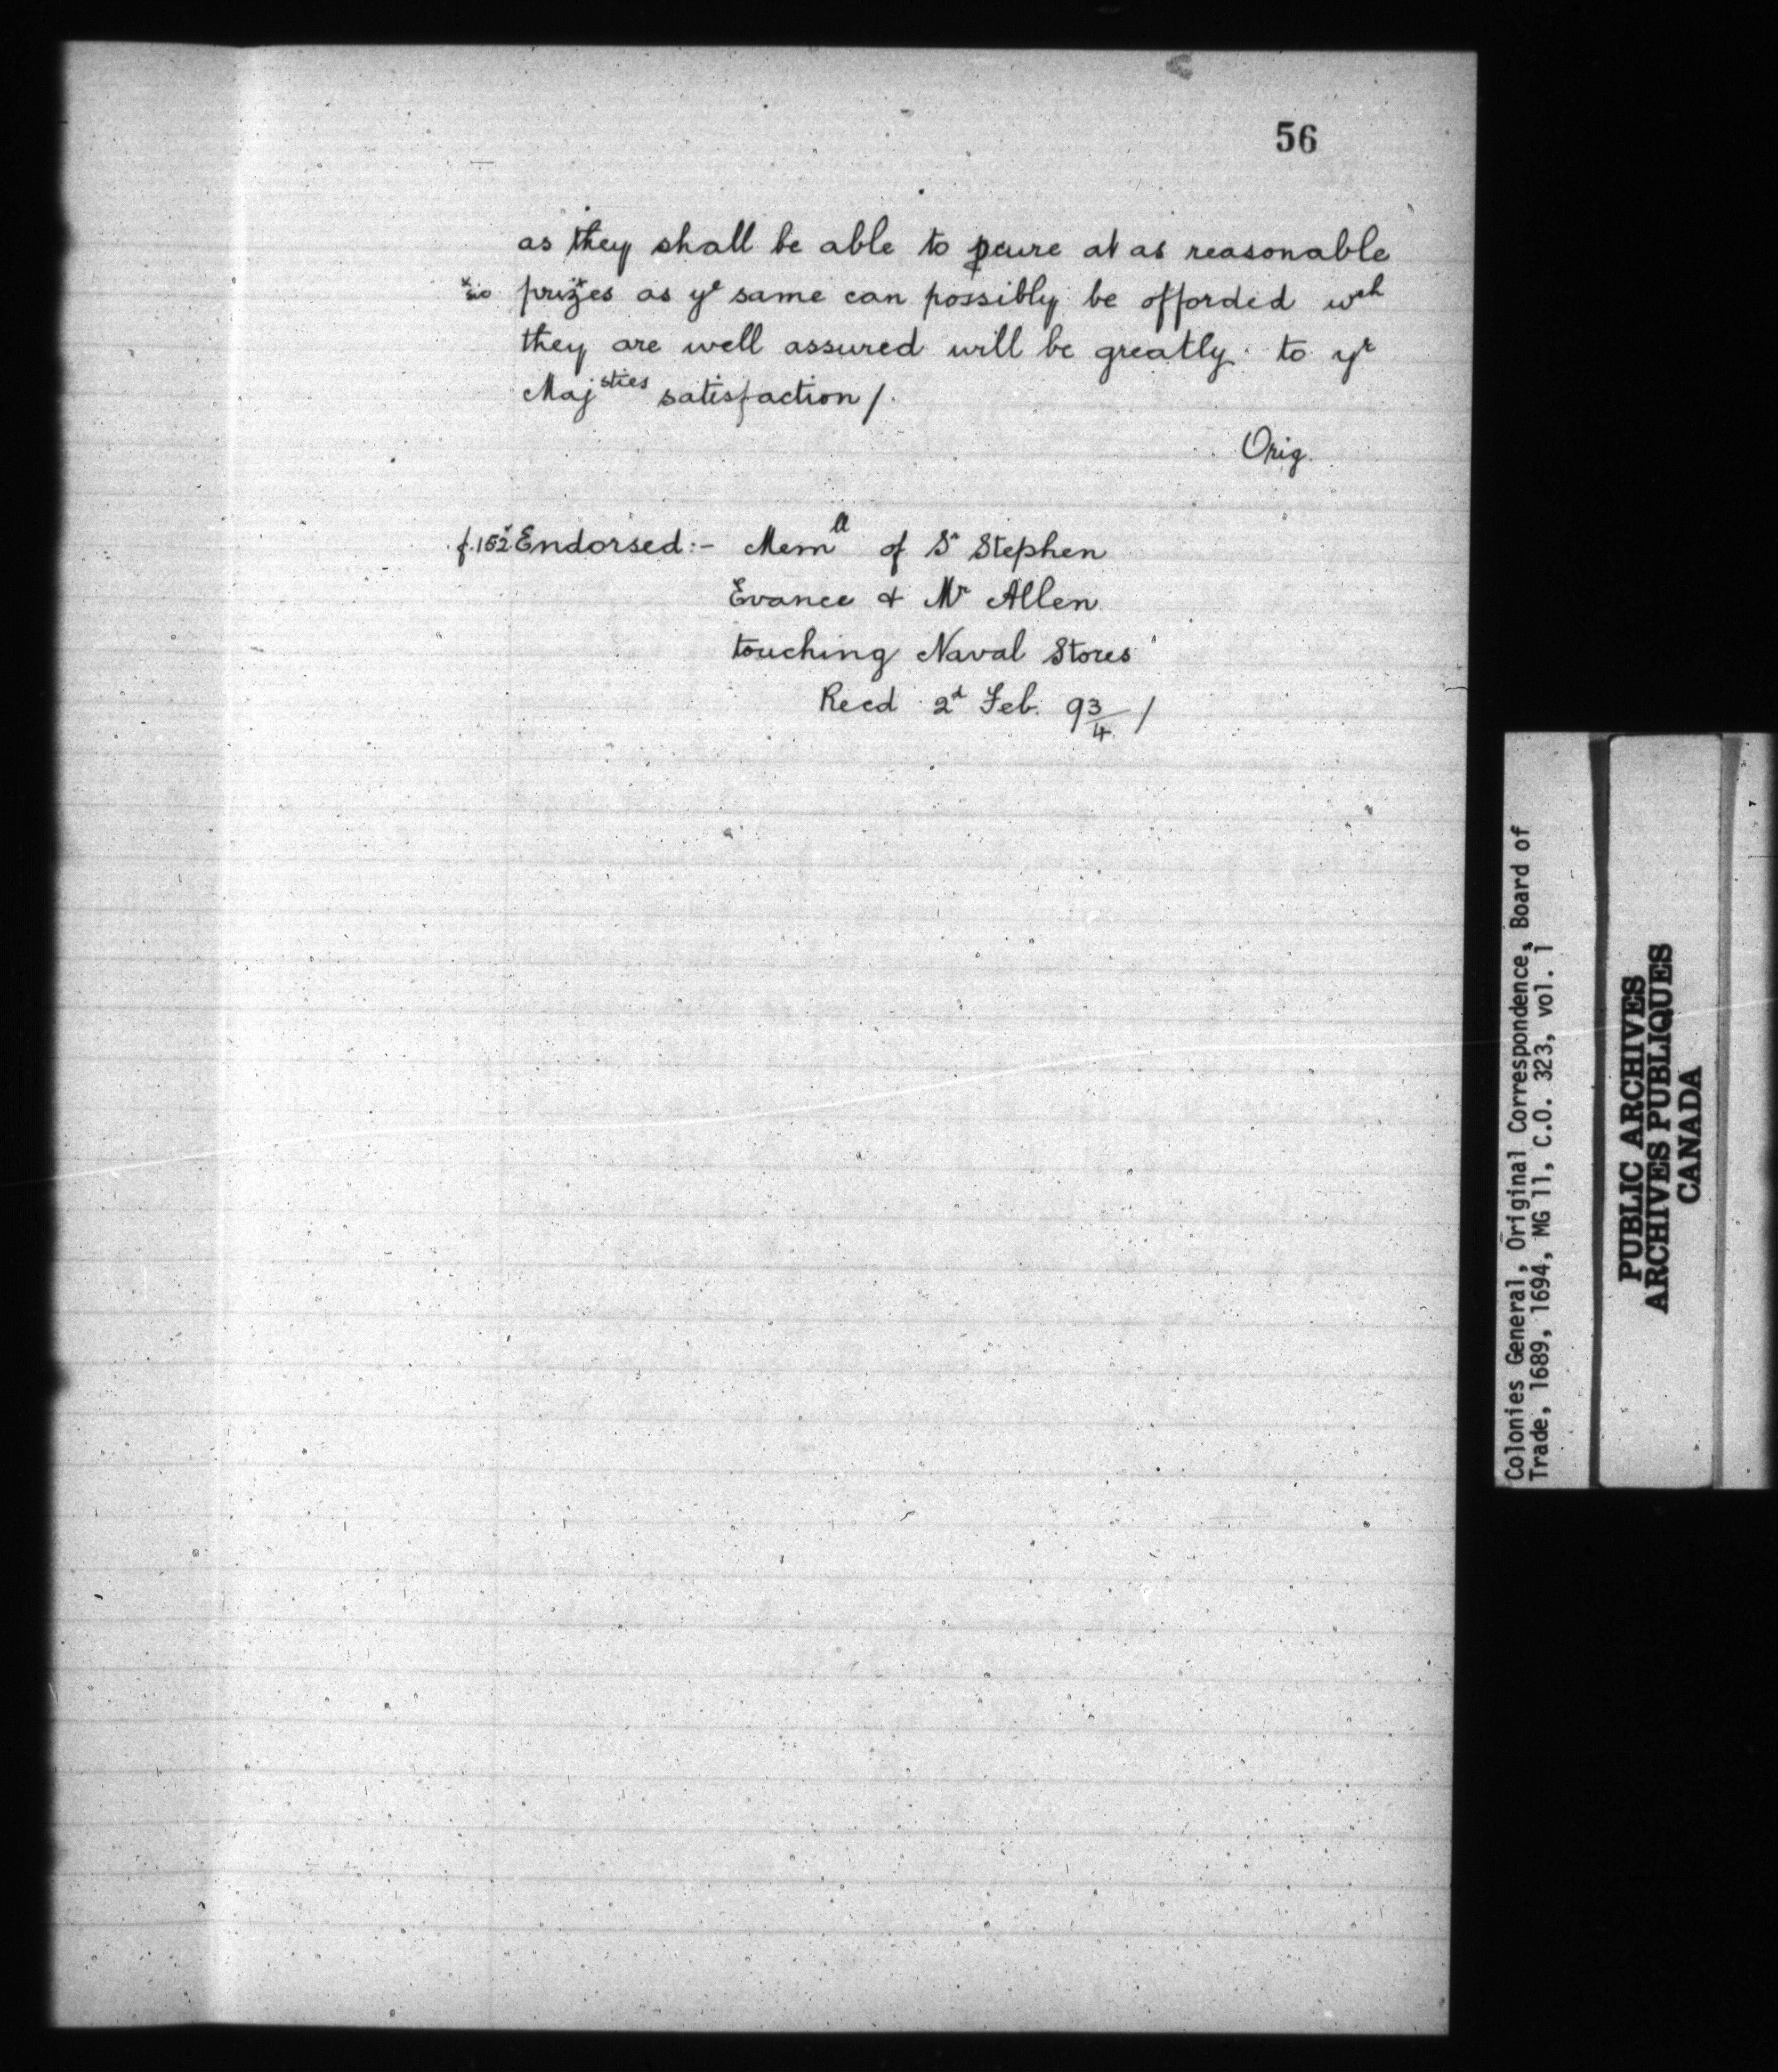 56
as they shall be able to pcure at as reasonable
*sic prizes* as yᵉ same can possibly be offorded wᶜʰ
they are well assured will be greatly to yʳ
Majˢᵗⁱᵉˢ satisfaction /.
Orig.
f.152ᵛ Endorsed:- Memˡˡ of Sʳ Stephen
Evance & Mʳ Allen
touching Naval Stores
Recd 2ᵈ Feb. 93/4 /
Colonies General, Original Correspondence, Board of
Trade, 1689, 1694, MG 11, C.O. 323, vol. 1
PUBLIC ARCHIVES
ARCHIVES PUBLIQUES
CANADA